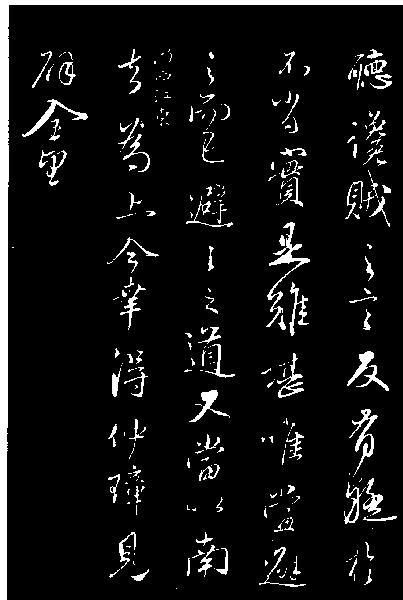 聽讒賊之言反有疑於
不肖實是難堪唯當避
之而已避之之道又當以南
去為上今幸得仲璋見
辟全望